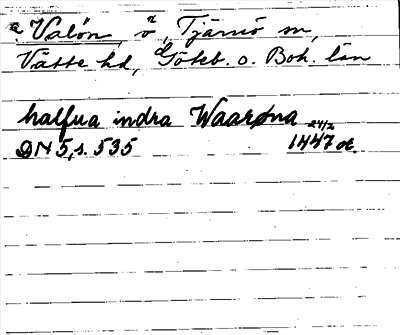 Valön, ö, Tjärnö sn,
Vätte hd, Göteb. o. Boh. län
halfua indra Waarøna
DN 5, s. 535 24/2 1447 or.